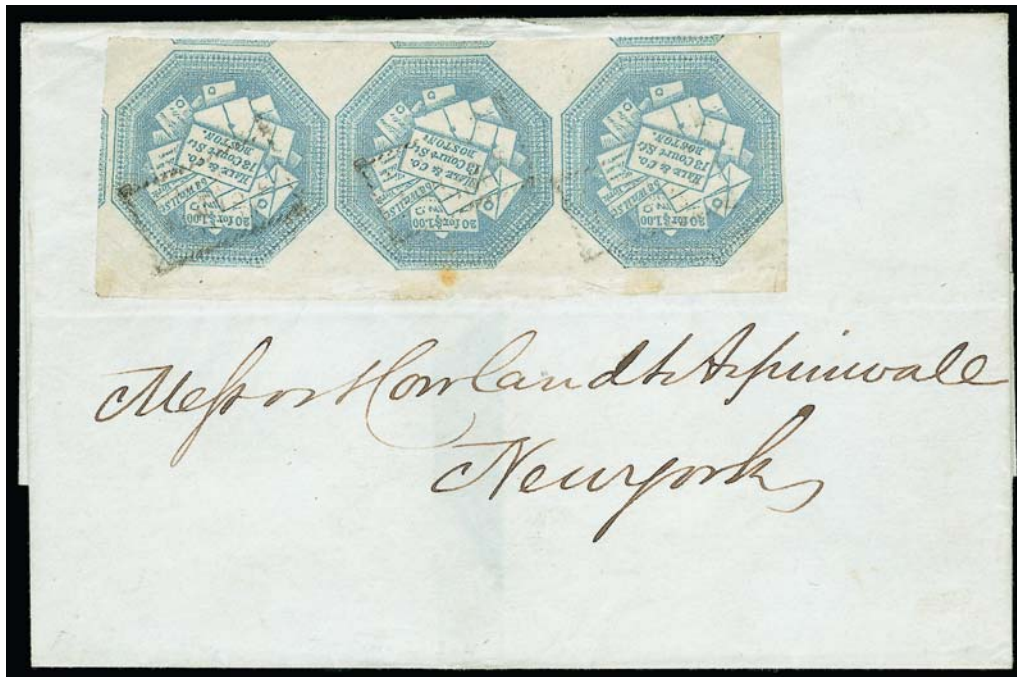 HALE & CO.
13 Court Str.
BOSTON.
20 for $1.00
HALE & CO.
13 Court Str.
BOSTON.
20 for $1.00
HALE & CO.
13 Court Str.
BOSTON.
20 for $1.00
Messrs Howland & Aspinwall
New York